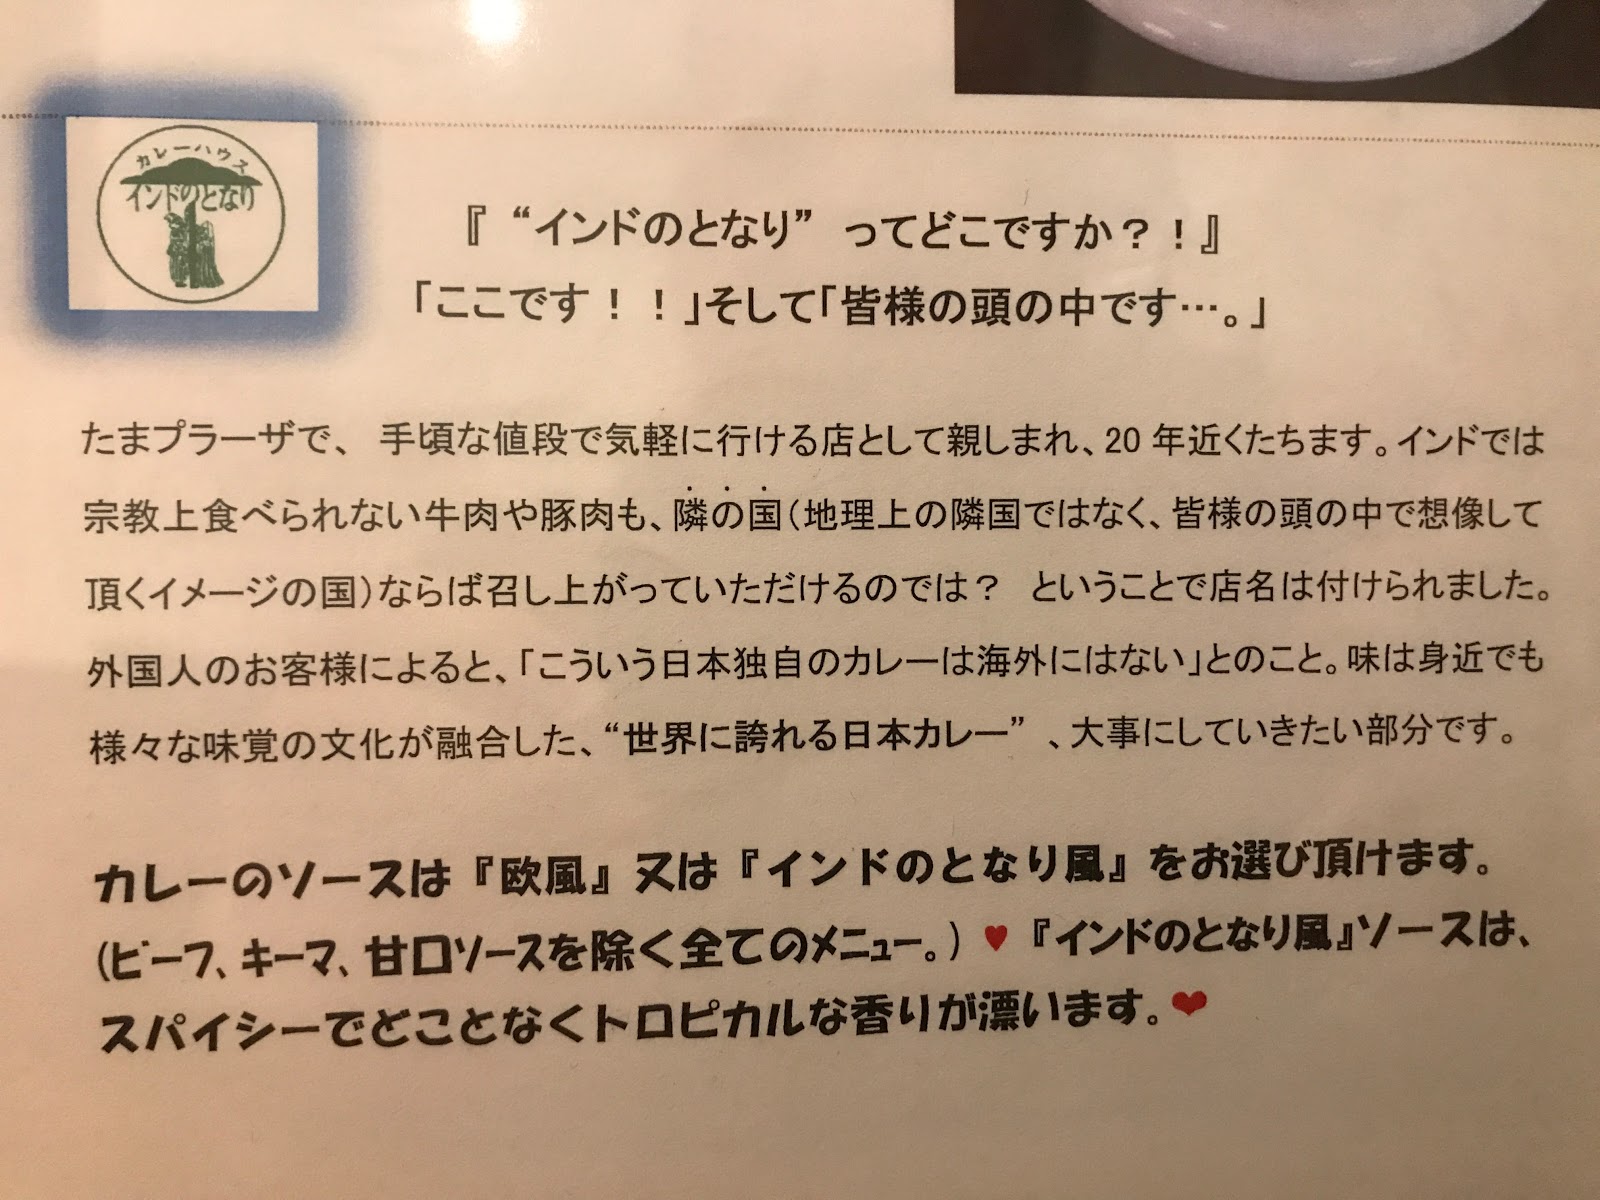 カレーハウス
インドのとなり
『 “インドのとなり” ってどこですか?!』
「ここです!!」そして「皆様の頭の中です…。」
たまプラーザで、 手頃な値段で気軽に行ける店として親しまれ、20 年近くたちます。インドでは
宗教上食べられない牛肉や豚肉も、隣の国(地理上の隣国ではなく、皆様の頭の中で想像して
頂くイメージの国)ならば召し上がっていただけるのでは? ということで店名は付けられました。
外国人のお客様によると、「こういう日本独自のカレーは海外にはない」とのこと。味は身近でも
様々な味覚の文化が融合した、“世界に誇れる日本カレー” 、大事にしていきたい部分です。
カレーのソースは『欧風』又は『インドのとなり風』をお選び頂けます。
(ビーフ、キーマ、甘口ソースを除く全てのメニュー。) ♥『インドのとなり風』ソースは、
スパイシーでどことなくトロピカルな香りが漂います。❤